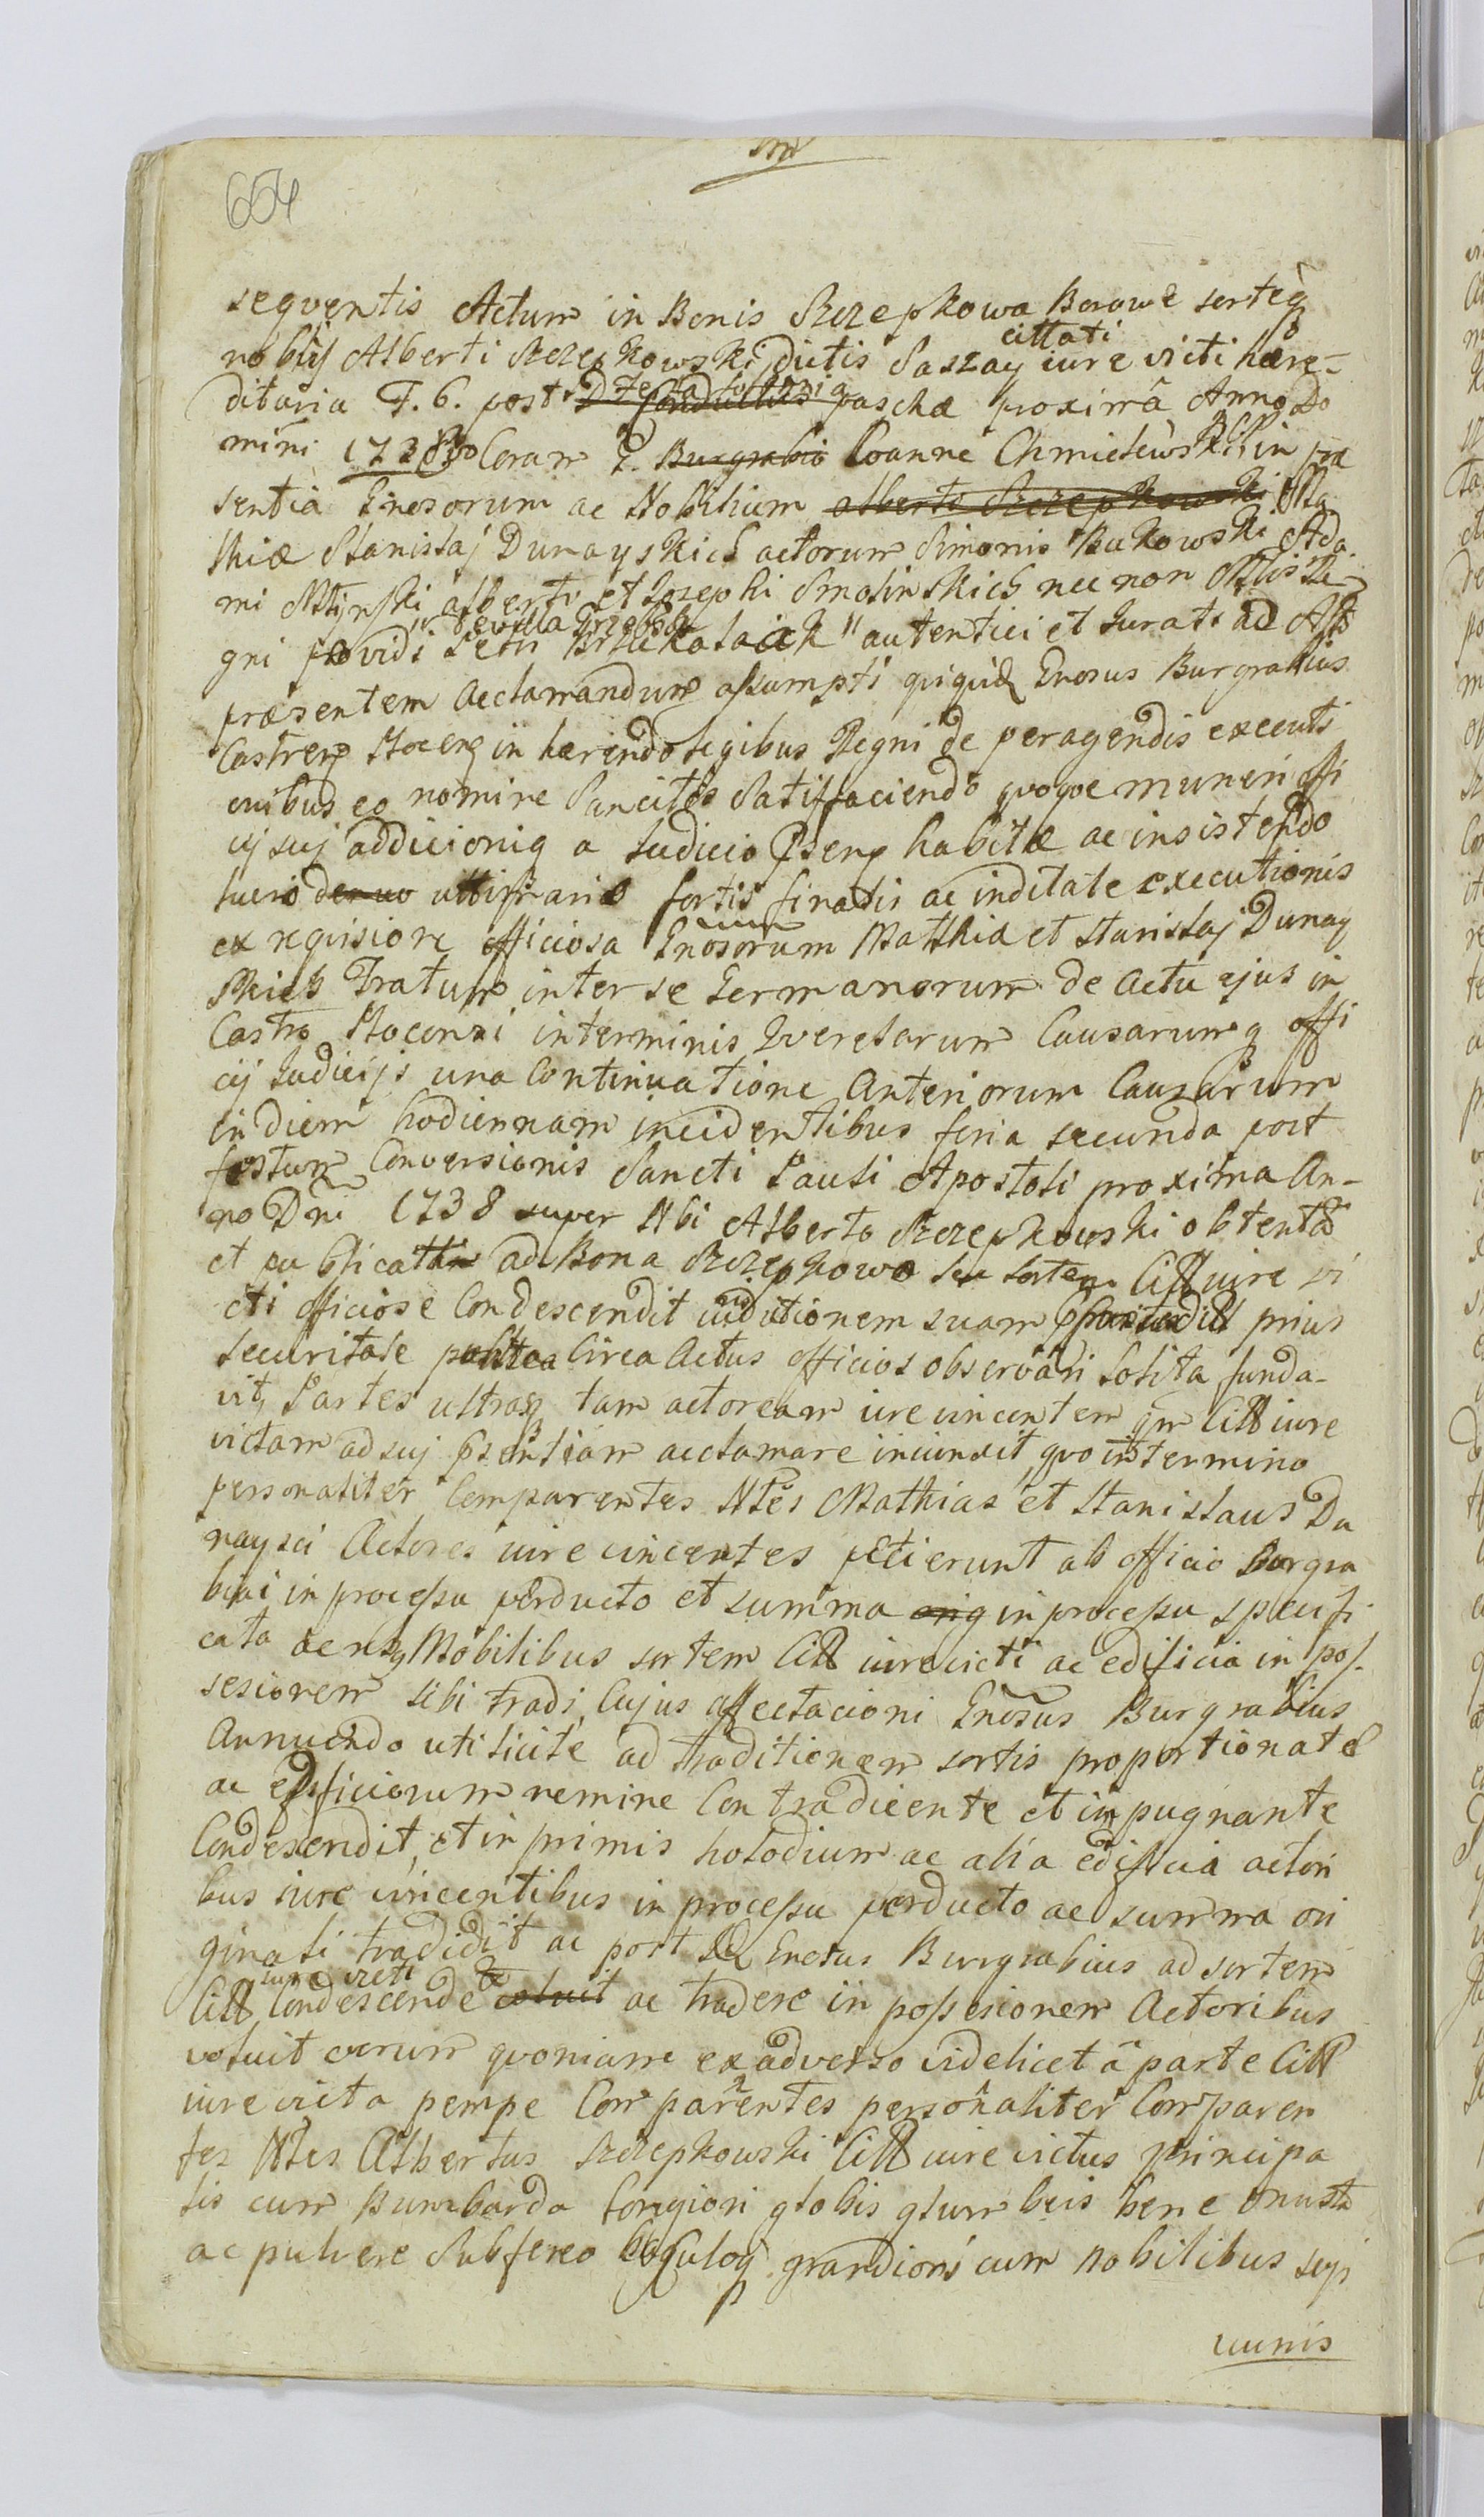 654
sequentis Actum in Bonis Szczepkowa Borowe sorteq
nobilj Alberti Szczepkowski dictis Saszay cittati iure victi hære-
ditaria F. 6. post Dominicam Conductus paschæ proximâ Anno Do
mini 1738vo Coram G. Burgrabio Ioanne Chmielewski in præ
sentia Gnosorum ac Nobilium alberto Szczepkowski Ma
thiæ Stanislaj Dunayskich actorum Simonis Bukowski Ada
mi Mlynski alberti et Iosephi Smolinskich nec non Mliste
gni providi Petri de villa autentici et Iurati ad Ast
præsentem acclamandum assumpti quiquid Gnosus Burgrabius
Castren in hærendo legibus Regni de peragendis executi
onibus eo nomine Sancitis Satisfaciendo quoque muneri offi
cij suj addicioniq a Iudicio Psenq habitæ ac insistendo
lucro de nuo ultifrariæ sortis finalis ac inditate executionis
ex requisiore officiosa Gnosorum Matthiæ et Stanislaj Dunay
skich Fratum inter se Germanorum de Actu ejus in
Castro interminis Qverelarum Causarumq offi
cij Iudicijs una Continuatione Anteriorum Causarum
in diem hodiernam incidentibus feria secunda post
festum Conversionis Sancti Pauli Apostoli proxima An-
no Dni 1738 super Nbi Alberto Szczepkowski obtentæ
et publicattis ad Bona Szczepkowo seu sortem Citt iure vi
cti officiose Condescendit indutionem suam prius
securitate politica Circa Actus officios observari Solita funda-
vit, Partes utrasq tam actoream iure vincentem qm Citt iure
victam ad suj psentiam acclamare iniunxit quo in termino
personaliter Comparentes Ntes Mathias et Stanislaus Du
naysci Actores iure vincentes petierunt ab officio Burgra
biali in processu perducto et summa orig in processu specifi
cata ac resq Mobilibus sortem Citt iure victi ac edificia in pos-
sesionem sibi tradi, Cujus affectacioni Gnosus Burgrabius
Annuendo uti licite ad traditionem sortis proportionatæ
ac edificiorum nemine Contradicente et impugnante
Condescendit, et in primis holodium ac alia edificia actori
bus iure vincentibus in processu perducto ac summa ori
ginali tradidit ac post Gnosus Burgrabius ad sortem
Citt iure victi Condescende voluit ac tradere in possesionem Actoribus
voluit verum quoniam ex adverso videlicet â parte Citt
iure victa pempe Comparentes personaliter Comparen
tes Ntes Albertus Szczepkowski Citt iure victus principa
lis cum Bumbarda longiori globis plumbeis bene onusta
ac pulvere Subfereo grandiori cum nobilibus
uunis